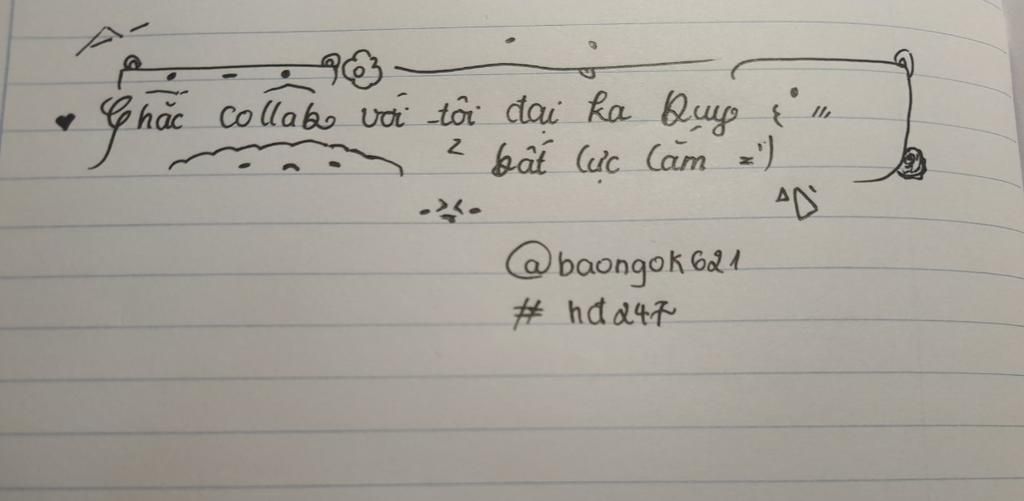 Chắc collab với tôi đại ka Quyp
bất lực lắm =')
@baongok621
# hd247